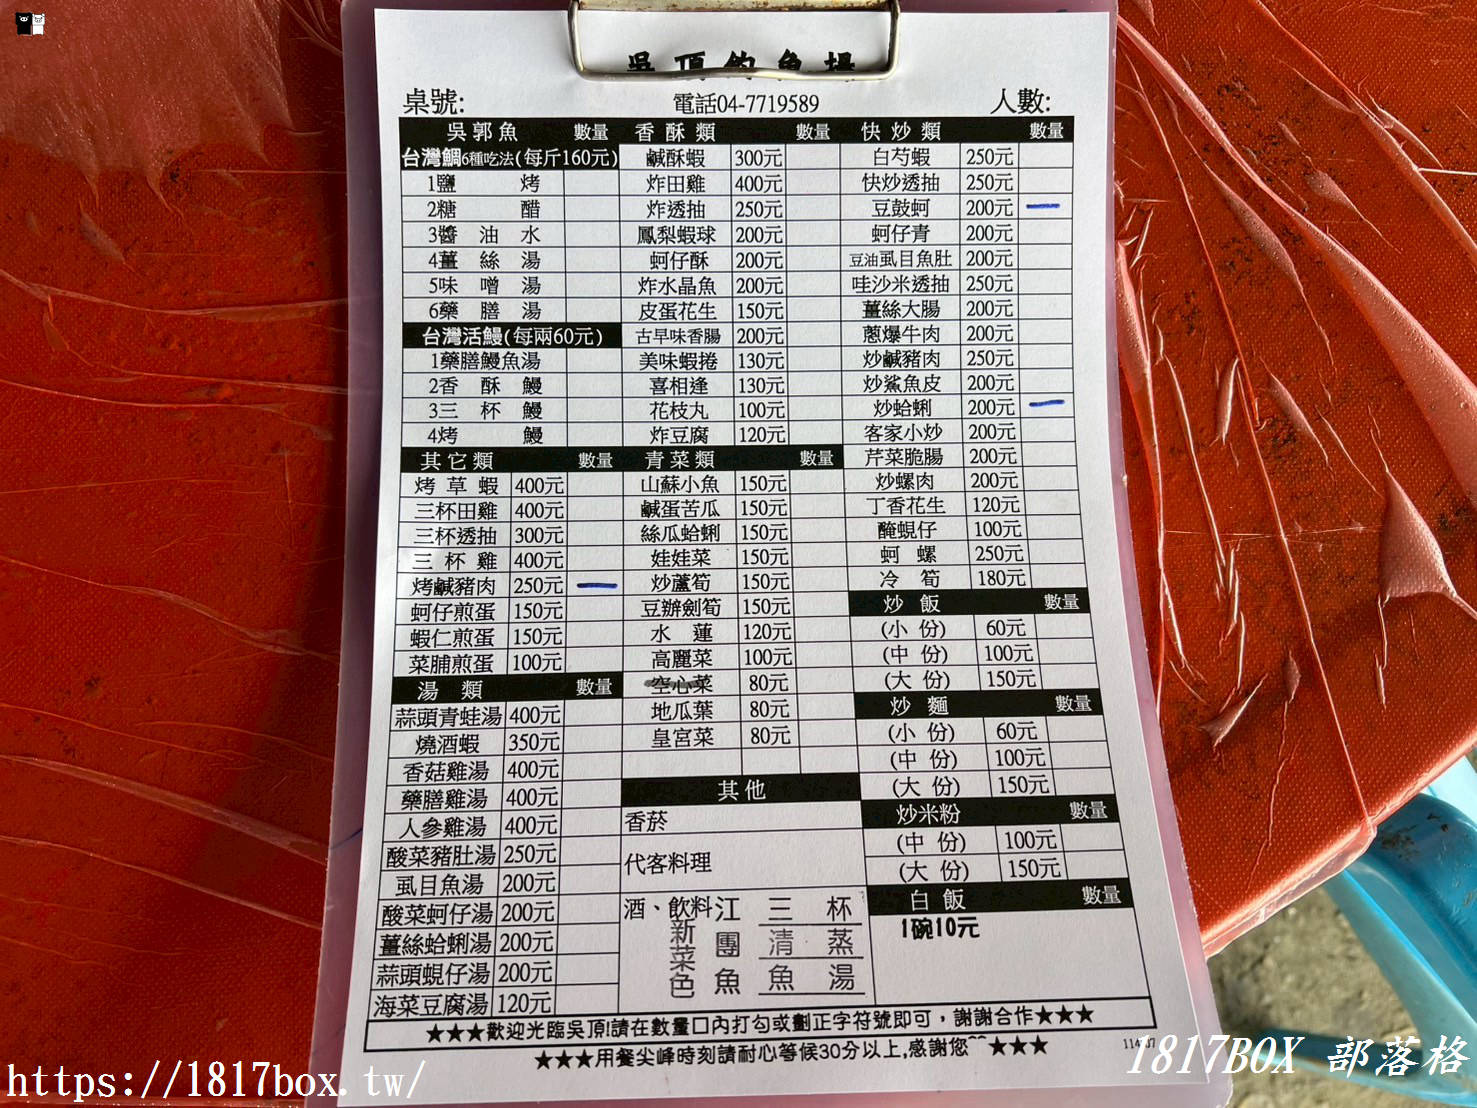 吳頂釣魚場
桌號: 電話04-7719589 人數:
吳郭魚 數量
台灣鯛6種吃法(每斤160元)
1鹽烤
2糖醋
3醬油水
4薑絲湯
5味噌湯
6藥膳湯
台灣活鰻(每兩60元)
1藥膳鰻魚湯
2香酥鰻
3三杯鰻
4烤鰻
其它類 數量
烤草蝦 400元
三杯田雞 400元
三杯透抽 300元
三杯雞 400元
烤鹹豬肉 250元
蚵仔煎蛋 150元
蝦仁煎蛋 150元
菜脯煎蛋 100元
湯類 數量
蒜頭青蛙湯 400元
燒酒蝦 350元
香菇雞湯 400元
藥膳雞湯 400元
人參雞湯 400元
酸菜豬肚湯 250元
虱目魚湯 200元
酸菜蚵仔湯 200元
薑絲蛤蜊湯 200元
蒜頭蜆仔湯 200元
海菜豆腐湯 120元
香酥類 數量
鹹酥蝦 300元
炸田雞 400元
炸透抽 250元
鳳梨蝦球 200元
蚵仔酥 200元
炸水晶魚 200元
皮蛋花生 150元
古早味香腸 200元
美味蝦捲 130元
喜相逢 130元
花枝丸 100元
炸豆腐 120元
青菜類 數量
山蘇小魚 150元
鹹蛋苦瓜 150元
絲瓜蛤蜊 150元
娃娃菜 150元
炒蘆筍 150元
豆瓣劍筍 150元
水蓮 120元
高麗菜 100元
空心菜 80元
地瓜葉 80元
皇宮菜 80元
其他
香菸
代客料理
酒、飲料
新菜色
江團魚
三杯
清蒸
魚湯
快炒類 數量
白芍蝦 250元
快炒透抽 250元
豆鼓蚵 200元
蚵仔青 200元
豆油虱目魚肚 200元
哇沙米透抽 250元
薑絲大腸 200元
蔥爆牛肉 200元
炒鹹豬肉 250元
炒鯊魚皮 200元
炒蛤蜊 200元
客家小炒 200元
芹菜脆腸 200元
炒螺肉 200元
丁香花生 120元
醃蜆仔 100元
蚵螺 250元
冷筍 180元
炒飯 數量
(小份) 60元
(中份) 100元
(大份) 150元
炒麵 數量
(小份) 60元
(中份) 100元
(大份) 150元
炒米粉 數量
(中份) 100元
(大份) 150元
白飯 數量
1碗10元
★★★歡迎光臨吳頂!請在數量口內打勾或劃正字符號即可，謝謝合作★★★
★★★用餐尖峰時刻請耐心等候30分以上,感謝您^^★★★
https://1817box.tw/
1817BOX 部落格